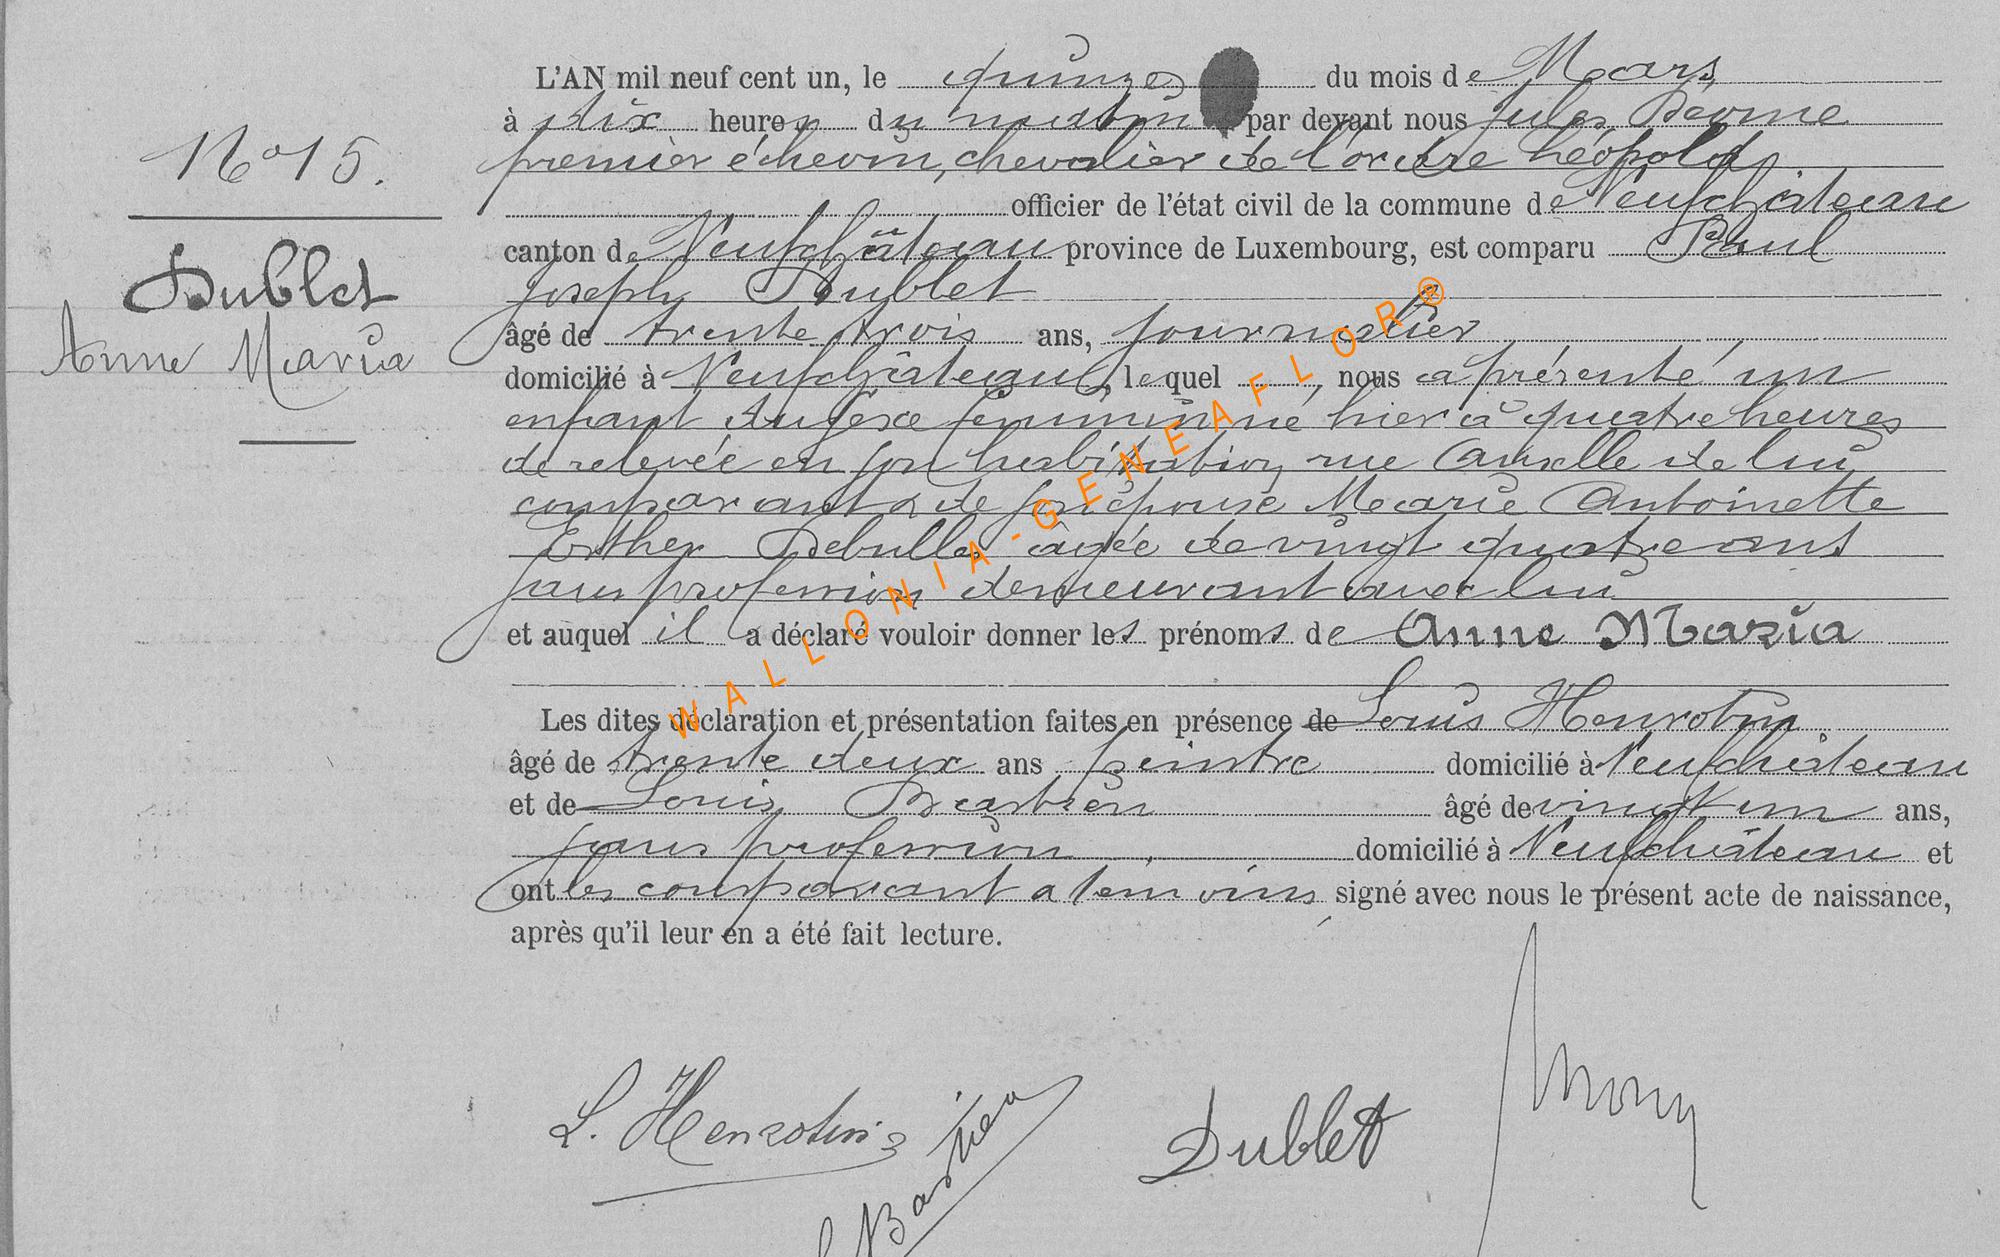 N° 15.
Dublet
Anne Maria
L'AN mil neuf cent un, le quinze du mois de Mars
à dix heures du matin par devant nous Jules
premier échevin, chevalier de l'ordre Léopold
officier de l'état civil de la commune de Neufchâteau
canton de Neufchâteau province de Luxembourg, est comparu Paul
Joseph Dublet
âgé de trente trois ans, journalier
domicilié à Neufchâteau, lequel, nous a présenté un
enfant du sexe féminin né hier à quatre heures
de relevée en son habitation rue de lui
comparant & de son épouse Marie Antoinette
Esther Debulle âgée de vingt quatre ans
sans profession demeurant avec lui
et auquel il a déclaré vouloir donner les prénoms de Anne Maria
Les dites déclaration et présentation faites en présence de Louis Henrotin
âgé de trente deux ans peintre domicilié à Neufchâteau
et de Louis Bastien âgé de vingt un ans,
sans profession, domicilié à Neufchâteau et
ont les comparant & témoins signé avec nous le présent acte de naissance,
après qu'il leur en a été fait lecture.
L. Henrotin
L Bastien
Dublet
WALLONIA-GENEAFLOR®